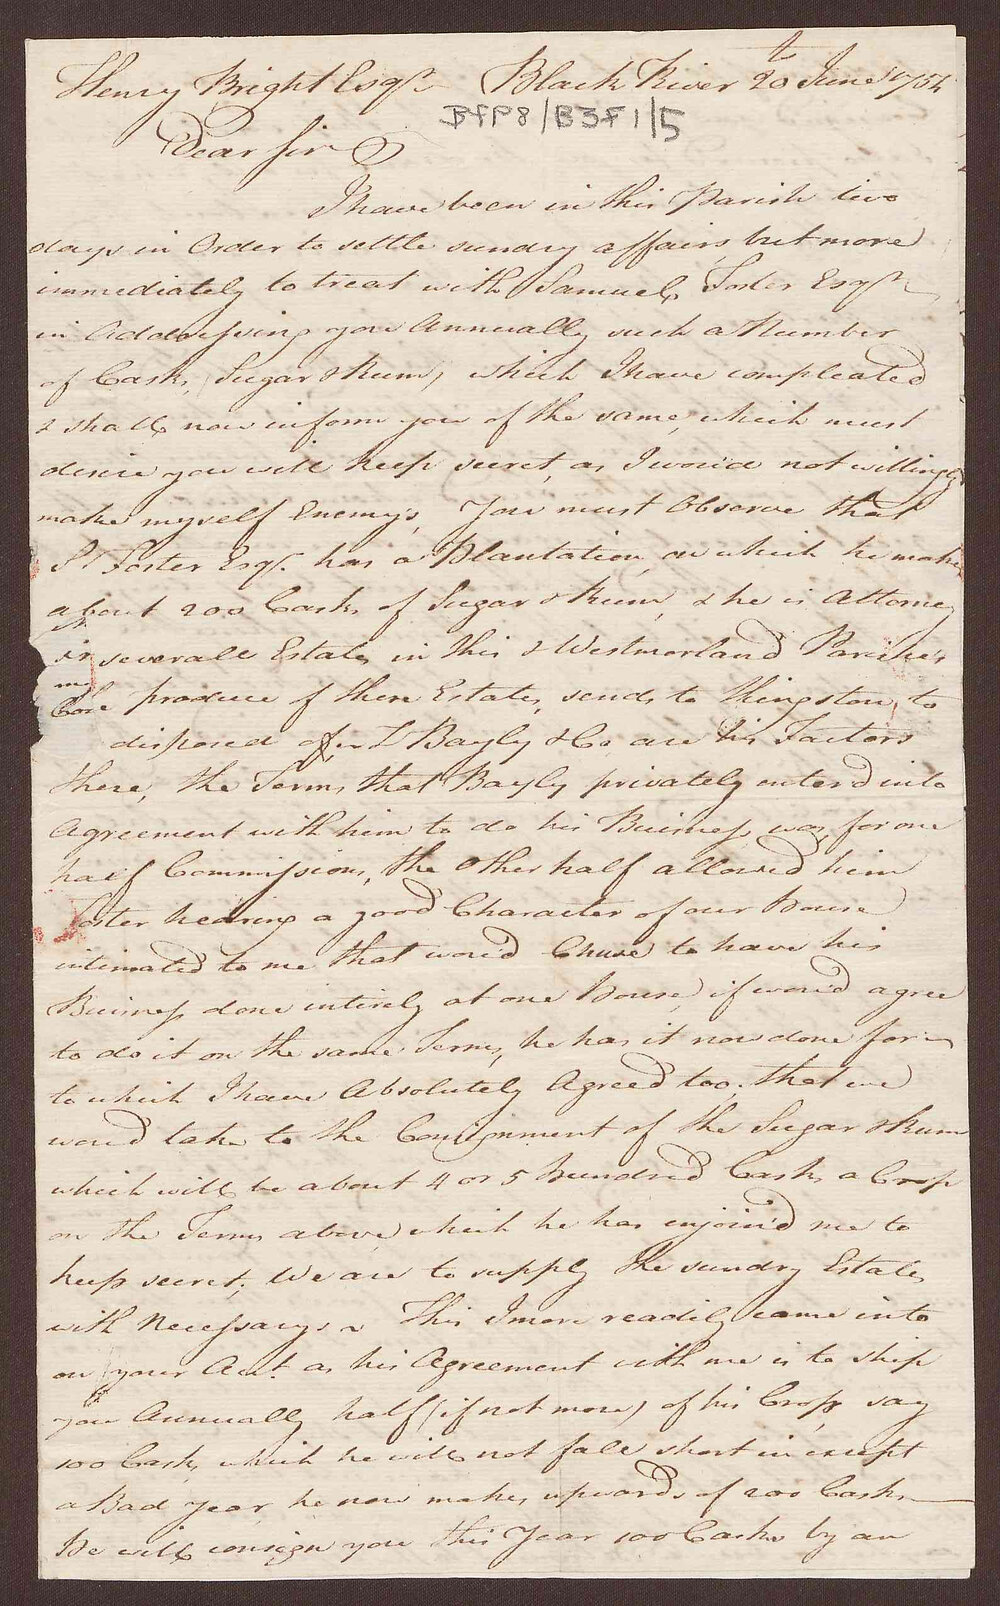 Henry Bright Esqr Black River 20t June 1754
BFP8/B3F1/5
Dear Sir
I have been in this Parish two
days in Order to settle sundry affairs, but more
immediately to treat with Samuel Foster Esqr
in Addressing you Annually such a Number
of Casks (Sugar & Rum) which I have compleated
& shall now inform you of the same, which must
desire you will keep secret, as I wou'd not willingly
make myself Enemys, You must Observe that
Sl Foster Esqr. has a Plantation, on which he makes
about 200 Casks of Sugar & Rum, & he is Attorney
for severall Estates in this & Westmorland Parishes
produce of there Estates, sends to Kingston, to
disposed off, Z Bayly & Co are his Factors
there, the Terms that Bayly privately enterd into
Agreement with him to do his Buiness, was, for one
half Commissions, the Other half allowed him
Foster hearing a good Character of our House
intimated to me that wou'd Chuse to have his
Buiness done intirely at one House, if wou'd agree
to do it on the same Terms, he has it now done for
to which I have Absolutely Agreed too, that we
wou'd take to the Consignment of the Sugar & Rum
which will be about 4 or 5 Hundred Casks a Crop
on the Terms above, which he has enjoin'd me to
keep secret; We are to supply the sundry Estates
with Necessarys & This I more readily came into
on your Acct. as his Agreement with me is to ship
you Annually half (if not more) of his Crop, say
100 Casks, which he will not fall short in except
a Bad Year, he now makes upwards of 200 Casks
He will consign you this Year 100 Casks by an